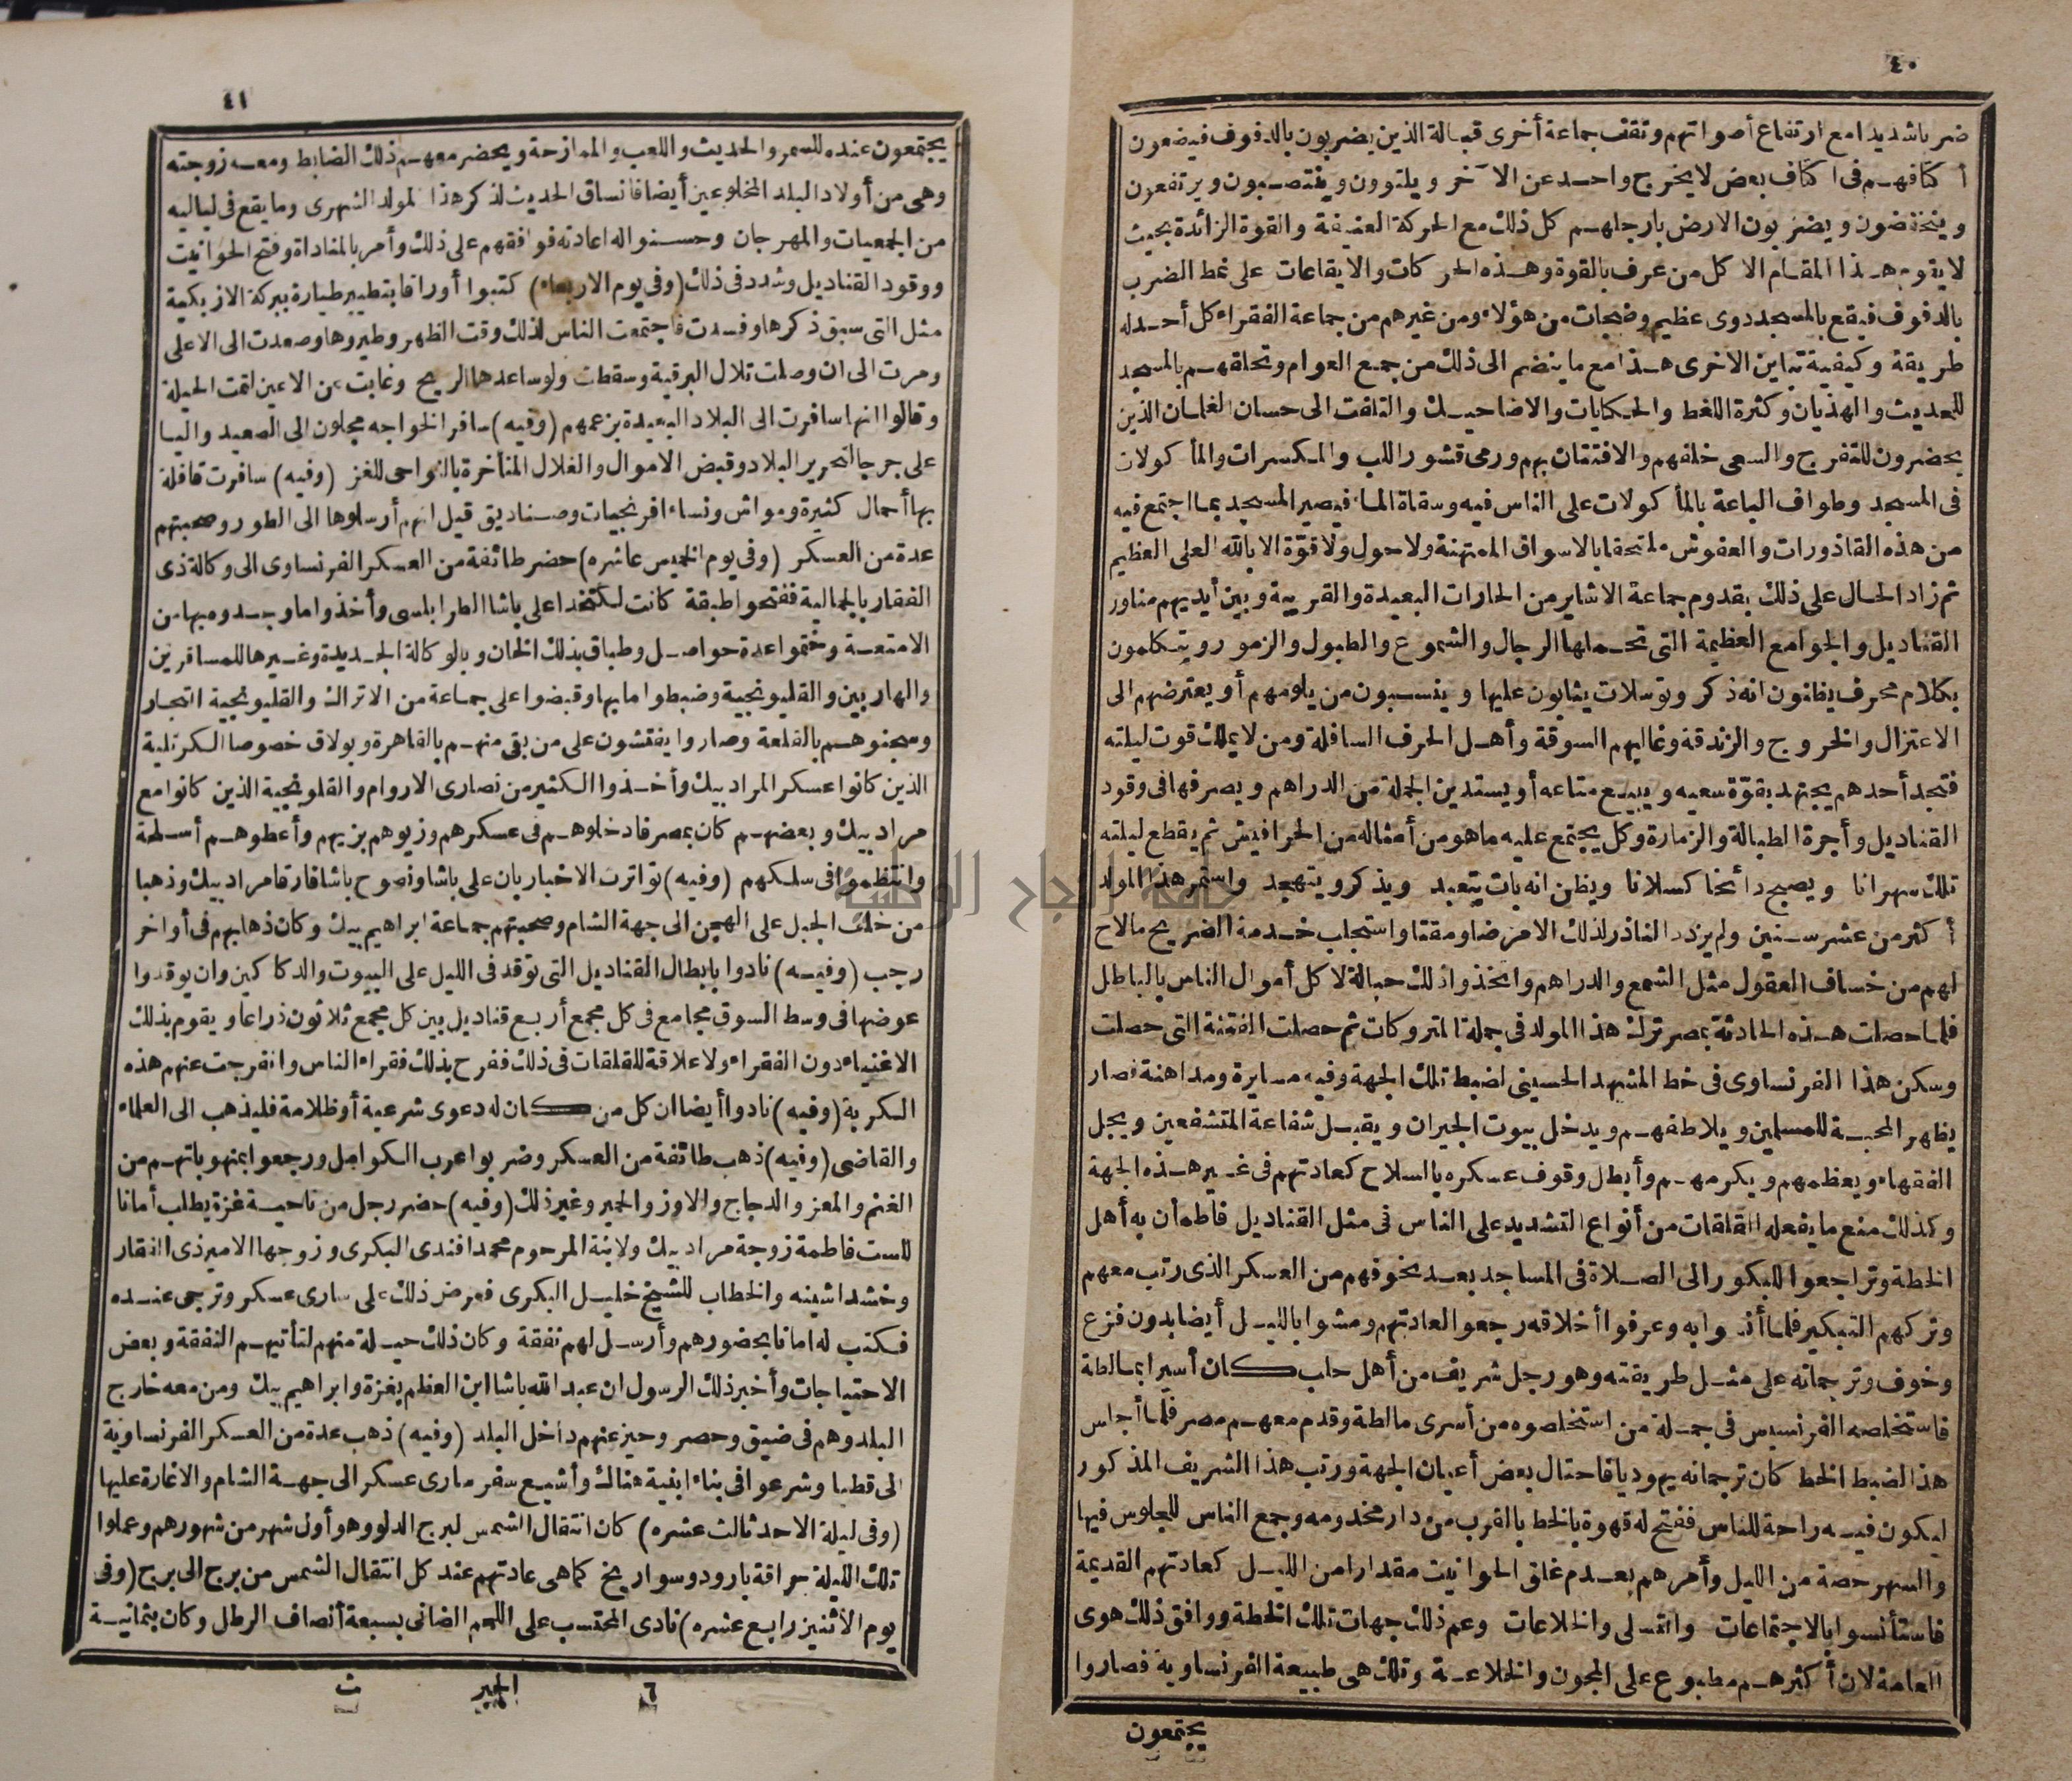 ٤٠
ضربا شديدا مع ارتفاع أصواتهم وتقف جماعة أخرى قبالة الذين يضربون بالدفوف فيضعون
أكتافهم فى اكتاف بعض لا يخرج واحد عن الآخر ويلتوون وينتصبون ويرتفعون
وينخفضون ويضربون الارض بارجلهم كل ذلك مع الحركة العنيفة والقوة الزائدة بحيث
لا يقوم هذا المقام الا كل من عرف بالقوة وهذه الحركات والايقاعات على نمط الضرب
بالدفوف فيقع بالمسجد دوى عظيم وضجات من هؤلاء ومن غيرهم من جماعة الفقراء كل أحد له
طريقة وكيفية تباين الاخرى هذا مع ما ينضم الى ذلك من جمع العوام وتحلقهم بالمسجد
للحديث والهذيان وكثرة اللغط والحكايات والاضاحيك والتلفت الى حسان الغلمان الذين
يحضرون للتفرج والسعى خلفهم والافتتان بهم ورمى قشور اللب والمكسرات والمأكولات
فى المسجد وطواف الباعة بالمأكولات على الناس فيه وسقاة الماء فيصير المسجد بما اجتمع فيه
من هذه القاذورات والعفوش ملتحقا بالاسواق الممتهنة ولا حول ولا قوّة الا بالله العلى العظيم
ثم زاد الحال على ذلك بقدوم جماعة الاشاير من الحارات البعيدة والقريبة وبين أيديهم مناور
القناديل والجوامع العظيمة التى تحملها الرجال والشموع والطبول والزمور ويتكلمون
بكلام محرف يظنون انه ذكر وتوسلات يثابون عليها وينسبون من يلومهم أو يعترضهم الى
الاعتزال والخروج والزندقة وغالبهم السوقة وأهل الحرف السافلة ومن لا يملك قوت ليلته
فتجد أحدهم يجتهد بقوّة سعيه ويبيع متاعه أو يستدين الجملة من الدراهم ويصرفها فى وقود
القناديل وأجرة الطبالة والزمارة وكل يجتمع عليه ما هو من أمثاله من الحرافيش ثم يقطع ليلته
تلك سهرانا ويصبح دائخا كسلانا ويظن انه بات يتعبد ويذكر ويتهجد واستمر هذا المولد
أكثر من عشر سنين ولم يزدد الناذر لذلك الامر ضا ومقتا واستجلب خدمة الضريح ما لاح
لهم من خساف العقول مثل الشمع والدراهم واتخذوا ذلك حبالة لاكل أموال الناس بالباطل
فلما حصلت هذه الحادثة بمصر ترك هذا المولد فى جملة المتروكات ثم حصلت الفتنة التى حصلت
وسكن هذا الفرنساوى فى خط المشهد الحسينى لضبط تلك الجهة وفيه مسايرة ومداهنة فصار
يظهر المحبة للمسلمين ويلاطفهم ويدخل بيوت الجيران ويقبل شفاعة المتشفعين ويجل
الفقهاء ويعظمهم ويكرمهم وأبطل وقوف عسكره بالسلاح كعادتهم فى غير هذه الجهة
وكذلك منع ما يفعله القلقات من أنواع التشديد على الناس فى مثل القناديل فاطمأن به أهل
الخطة وتراجعوا للبكور الى الصلاة فى المساجد بعد تخوفهم من العسكر الذى رتب معهم
وتركهم التبكير فلما أنسوا به وعرفوا أخلاقه رجعوا لعادتهم ومشوا بالليل أيضا بدون فزع
وخوف وترجمانه على مثل طريقته وهو رجل شريف من أهل حلب كان أسيرا بمالطة
فاستخلصه الفرنسيس فى جملة من استخلصوه من أسرى مالطة وقدم معهم مصر فلما أجلس
هذا لضبط الخط كان ترجمانه يهوديا فاحتال بعض أعيان الجهة ورتب هذا الشريف المذكور
ليكون فيه راحة للناس ففتح له قهوة بالخط بالقرب من دار مخدومه وجمع الناس للجلوس فيها
والسهر حصة من الليل وأمرهم بعدم غلق الحوانيت مقدارا من الليل كعادتهم القديمة
فاستأنسوا بالاجتماعات والتسلى والخلاعات وعم ذلك جهات تلك الخطة ووافق ذلك هوى
العامة لان أكثرهم مطبوع على المجون والخلاعة وتلك هى طبيعة الفرنساوية فصاروا
يجتمعون
٤١
يجتمعون عنده للسمر والحديث واللعب والممازحة ويحضر معهم ذلك الضابط ومعه زوجته
وهى من أولاد البلد المخلوعين أيضا فانساق الحديث لذكر هذا المولد الشهرى وما يقع فى لياليه
من الجمعيات والمهرجان وحسنوا له اعادته فوافقهم على ذلك وأمر بالمناداة وفتح الحوانيت
ووقود القناديل وشدد فى ذلك (وفى يوم الاربعاء) كتبوا أوراقا بتطيير طيارة ببركة الازبكية
مثل التى سبق ذكرها وفسدت فاجتمعت الناس لذلك وقت الظهر وطيروها وصعدت الى الاعلى
ومرت الى ان وصلت تلال البرقية وسقطت ولو ساعدها الريح وغابت عن الاعين لتمت الحيلة
وقالوا انها سافرت الى البلاد البعيدة بزعمهم (وفيه) سافر الخواجه مجلون الى الصعيد واليا
على جرجا لتحرير البلاد وقبض الاموال والغلال المتأخرة بالنواحى للغز (وفيه) سافرت قافلة
بها أحمال كثيرة ومواش ونساء افرنجيات وصناديق قيل انهم أرسلوها الى الطور وصحبتهم
عدة من العسكر (وفى يوم الخميس عاشره) حضر طائفة من العسكر الفرنساوى الى وكالة ذى
الفقار بالجمالية ففتحوا طبقة كانت لكتخدا على باشا الطرابلسى وأخذوا ما وجدوه بها من
الامتعة وختموا عدة حواصل وطباق بذلك الخان وبالوكالة الجديدة وغيرها للمسافرين
والهاربين والقليونجية وضبطوا ما بها وقبضوا على جماعة من الاتراك والقليونجية التجار
وسجنوهم بالقلعة وصاروا يفتشون على من بقى منهم بالقاهرة وبولاق خصوصا الكرتلية
الذين كانوا عسكر المراد بيك وأخذوا الكثير من نصارى الاروام والقلونجية الذين كانوا مع
مراد بيك وبعضهم كان بمصر فادخلوهم فى عسكرهم وزيوهم بزيهم وأعطوهم أسلحة
وانتظموا فى سلكهم (وفيه) تواترت الاخبار بان على باشا ونصوح باشا فارقا مراد بيك وذهبا
من خلف الجبل على الهجن الى جهة الشام وصحبتهم جماعة ابراهيم بيك وكان ذهابهم فى أواخر
رجب (وفيه) نادوا بابطال القناديل التى توقد فى الليل على البيوت والدكاكين وان يوقدوا
عوضها فى وسط السوق مجامع فى كل مجمع أربع قناديل بين كل مجمع ثلاثون ذراعا ويقوم بذلك
الاغنياء دون الفقراء ولا علاقة للقلقات فى ذلك ففرح بذلك فقراء الناس وانفرجت عنهم هذه
الكربة (وفيه) نادوا أيضا ان كل من كان له دعوى شرعية أو ظلامة فليذهب الى العلماء
والقاضى (وفيه) ذهب طائفة من العسكر وضربوا عرب الكوامل ورجعوا بمنهوباتهم من
الغنم والمعز والدجاج والاوز والحمير وغير ذلك (وفيه) حضر رجل من ناحية غزة يطلب أمانا
للست فاطمة زوجة مراد بيك ولابنة المرحوم محمد افندى البكرى وزوجها الامير ذى الفقار
وخشداشينه والخطاب للشيخ خليل البكرى فعرض ذلك على سارى عسكر وترجى عنده
فكتب له امانا بحضورهم وأرسل لهم نفقة وكان ذلك حيلة منهم لتأتيهم النفقة وبعض
الاحتياجات وأخبر ذلك الرسول ان عبد الله باشا ابن العظم بغزة وابراهيم بيك ومن معه خارج
البلد وهم فى ضيق وحصر وحيز عنهم داخل البلد (وفيه) ذهب عدة من العسكر الفرنساوية
الى قطيا وشرعوا فى بناء ابنية هناك وأشيع سفر سارى عسكر الى جهة الشام والاغارة عليها
(وفى ليلة الاحد ثالث عشره) كان انتقال الشمس لبرج الدلو وهو أول شهر من شهورهم وعملوا
تلك الليلة حراقة بارود وسواريخ كما هى عادتهم عند كل انتقال الشمس من برج الى برج (وفى
يوم الاثنين رابع عشره) نادى المحتسب على اللحم الضانى بسبعة أنصاف الرطل وكان بثمانية
٦ الجبر ث
جامعة النجاح الوطنية